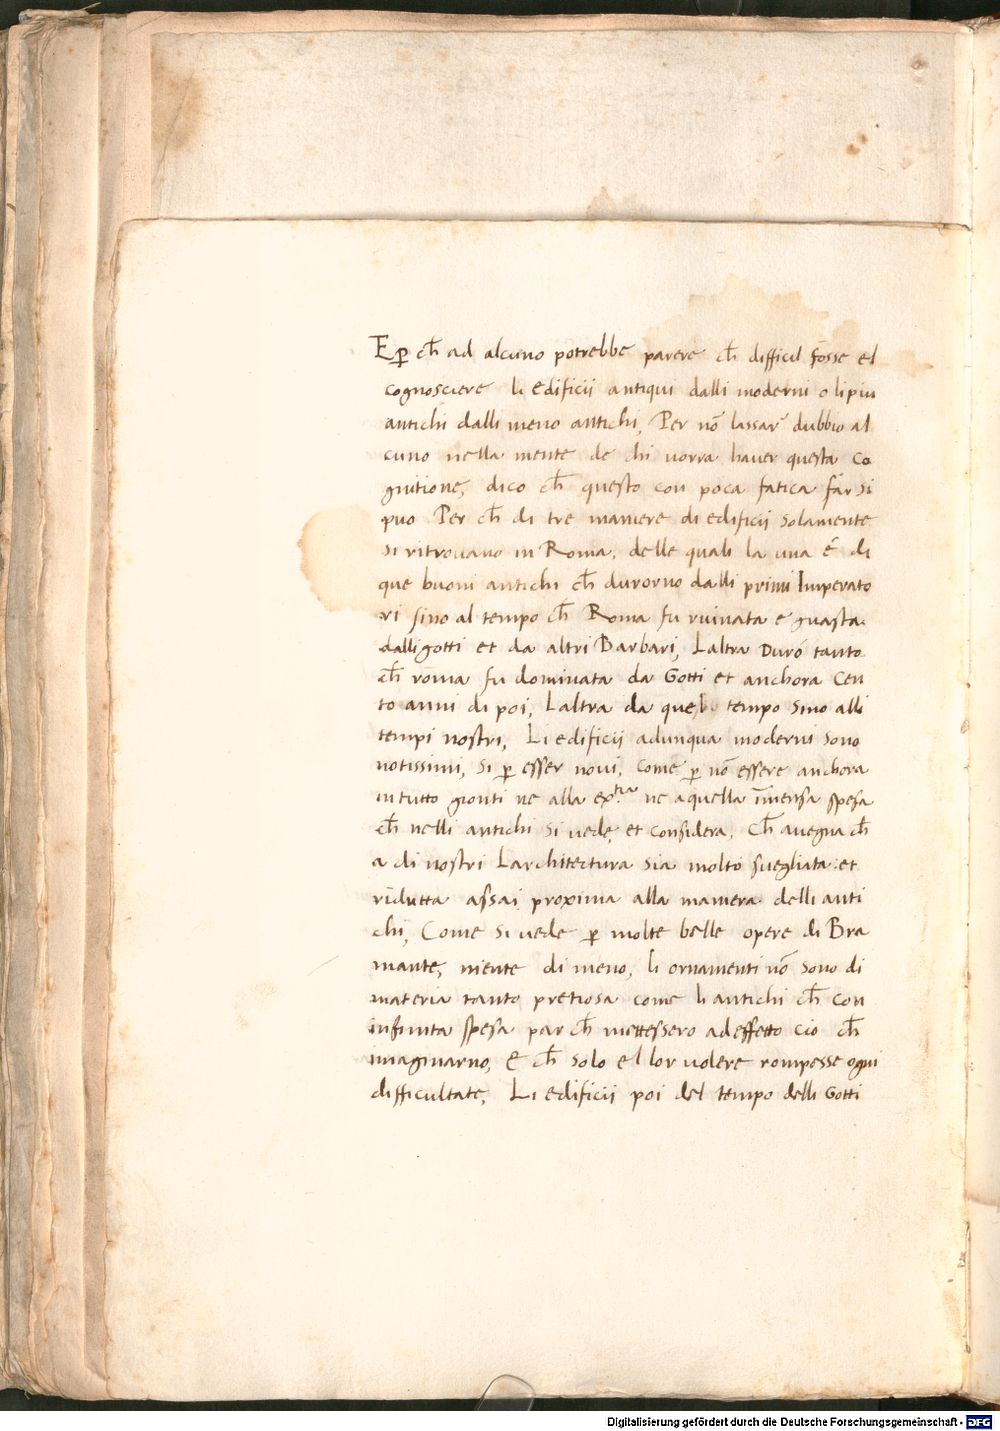 E ꝑ ch̄ ad alcuno potrebbe parere ch̄ difficil fosse el
cognosciere li edificii antiqui dalli moderni o li piu
antichi dalli meno antichi, Per nō lassar dubbio al
cuno nella mente de chi vorra haver questa co
gnitione, dico ch̄ questo con poca fatica far si
puo Per ch̄ di tre maniere di edificii solamente
si ritrovano in Roma, delle quali la una é di
que buoni antichi ch̄ durorno dalli primi Imperato
ri sino al tempo ch̄ Roma fu ruinata e guasta
dalli gotti et da altri Barbari, Laltra Duró tanto
ch̄ roma fu dominata da Gotti et anchora Cen
to anni di poi, Laltra da quel tempo sino alli
tempi nostri, Li edificii adunqua moderni sono
notissimi, si ꝑ esser novi, come ꝑ nō essere anchora
in tutto gionti ne alla ex.tia ne a quella īmensa spesa
ch̄ nelli antichi si vede, et considera, Ch̄ avegna ch̄
a di nostri Larchitectura sia molto svegliata et
ridutta assai proxima alla maniera delli anti
chi, Come si vede ꝑ molte belle opere di Bra
mante, niente di meno, li ornamenti nō sono di
materia tanto pretiosa come li antichi ch̄ con
infinita spesa par ch̄ mettessero ad effetto cio ch̄
imaginarno, E ch̄ solo el lor volere rompesse ogni
difficultate, Li edificii poi del tempo delli Gotti
Digitalisierung gefördert durch die Deutsche Forschungsgemeinschaft - DFG